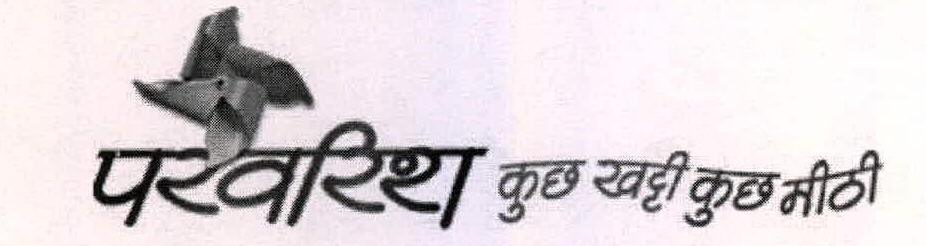 परवरिश कुछ खट्टी कुछ मीठी